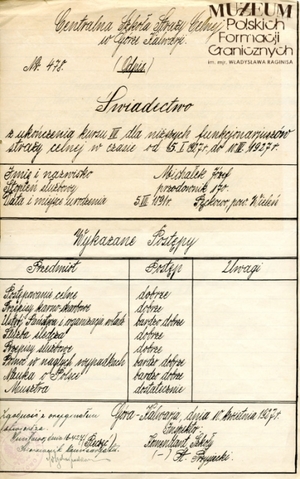 MUZEUM
Polskich
Formacji
Granicznych
im. mjr. WŁADYSŁAWA RAGINISA
Centralna Szkoła Straży Celnej
w Górze Kalwarji.
Nr. 478.
(Odpis)
Świadectwo
z ukończenia kursu III dla niższych funkcjonarjuszów
straży celnej w czasie od 15.I.1927r. do 10.IV.1927r.
Imię i nazwisko Michałek Józef
Stopień służbowy przodownik
Data i miejsce urodzenia 5 1891r. pow. Wieluń
Wykazane Postępy
Przedmiot Postęp Uwagi
Postępowanie celne dobrze
Przepisy karno-skarbowe dobrze
Ustrój Państwa i organizacja władz bardzo dobrze
Służba śledcza dobrze
Przepisy służbowe dobrze
Pomoc w nagłych wypadkach bardzo dobrze
Nauka o Polsce bardzo dobrze
Musztra dostatecznie
Zgodność z oryginałem
Góra-Kalwarja, dnia 10. kwietnia 1927r.
Inspektor
Komendant Szkoły
(-) St.